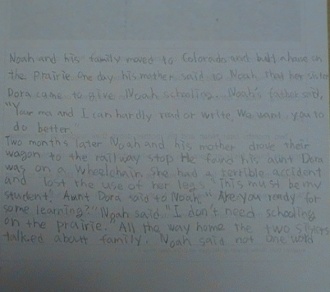 Noah and his family moved to Colorado and build a house on
the prairie. One day his mother said to Noah that her sister
Dora came to give Noah schooling. Noah's father said,
"Your ma and I can hardly read or write. We want you to
do better."
Two months later Noah and his mother drove their
wagon to the railway stop. He found his aunt Dora
was on a wheelchair. She had a terrible accident
and lost the use of her legs. "This must be my
student." Aunt Dora said to Noah. "Are you ready for
some learning?" Noah said. "I don't need schooling
on the prairie." All the way home the two sisters
talked about family. Noah said not one word